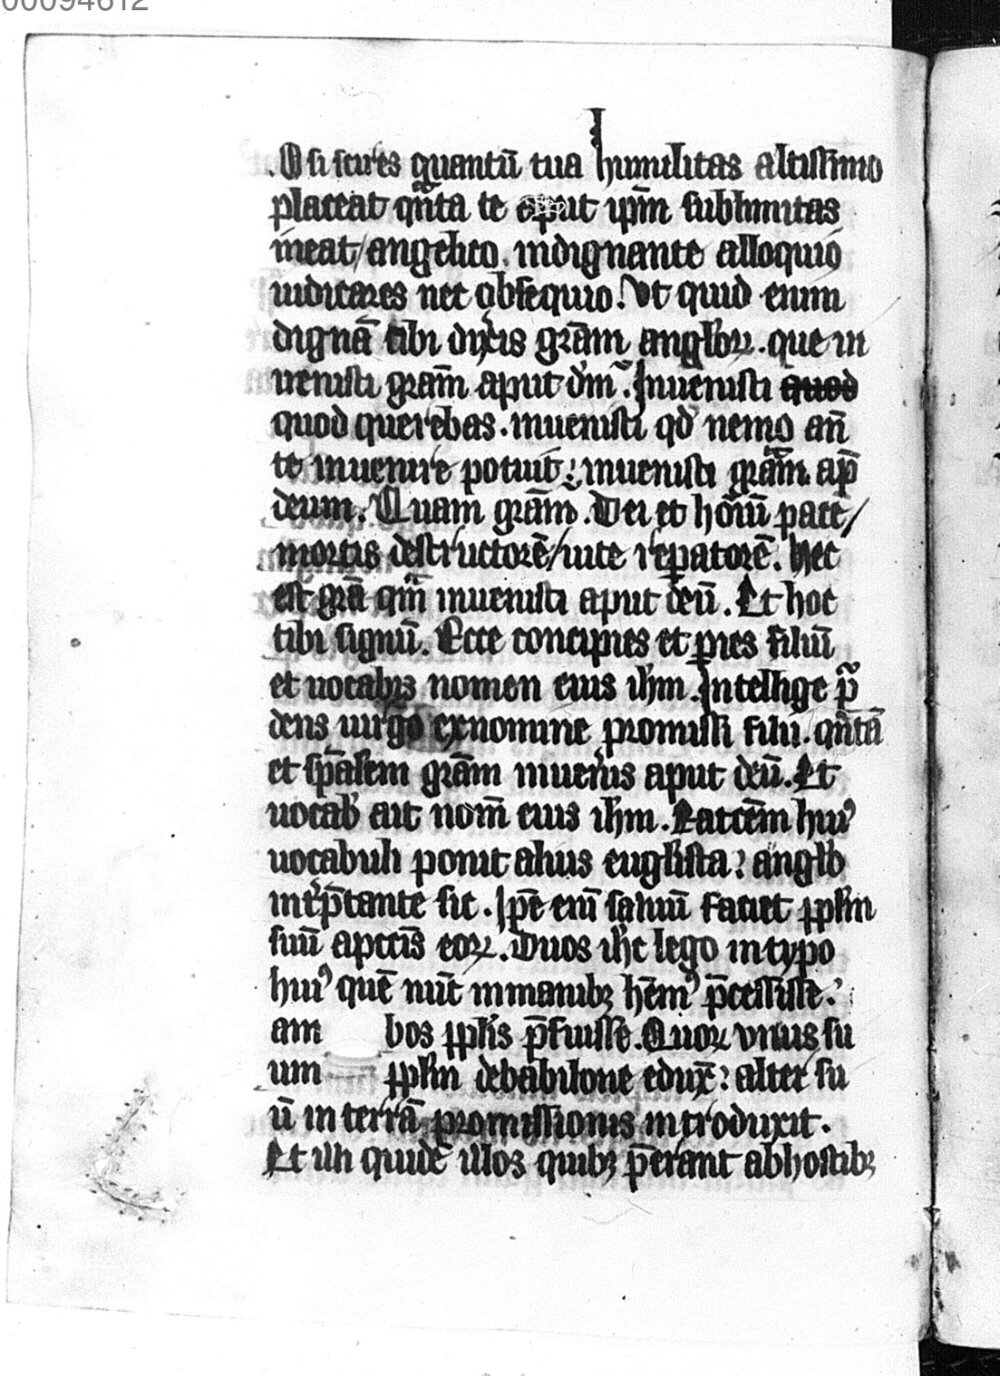 00094612
.O si scires quantū tua humilitas altissimo
placeat qͣnta te apͩut ipm̄ sublimitas
maneat/angelico. indignante alloquio
iudicares nec obsequio. Vt quid enim
dignā tibi dixeris grām anglorꝝ. que in
uenisti grām aput dm̄. Inuenisti quod
quod querebas. inuenisti qd̄ nemo an̄
te inuenire potuit; inuenisti grām. ap̄
deum. Quam grām. Dei et hoīū pacē/
mortis destructorē/uite reꝑatorē. hec
est grā qm̄ inuenisti aput deū. Et hoc
tibi signū. Ecce concipies et ꝑies filiū
et uocabis nomen eius ihm. Intellige p̄
dens uirgo exnomine promissi filii. qͣntā
et sp̄alem grām inueneris aput deū. Et
uocab' ait nom̄ eius ihm. Ratōem huiꝰ
uocabuli ponit alius euglista? anglo
intꝑp̄tante sic. Ipē eni saluū faciet pplm
suū apctis eoꝝ. Duos ihc lego intypo
huiꝰ quē nūc inmanibꝫ hēmꝰ p̄cessisse.
am bos pplis p̄fuisse. Quoꝝ vnus su
um pplm debabilone eduxᵗ? alter su
ū in terrā promissionis introduxit.
Et illi quidē illos quibꝫ p̄erant abhostibꝫ